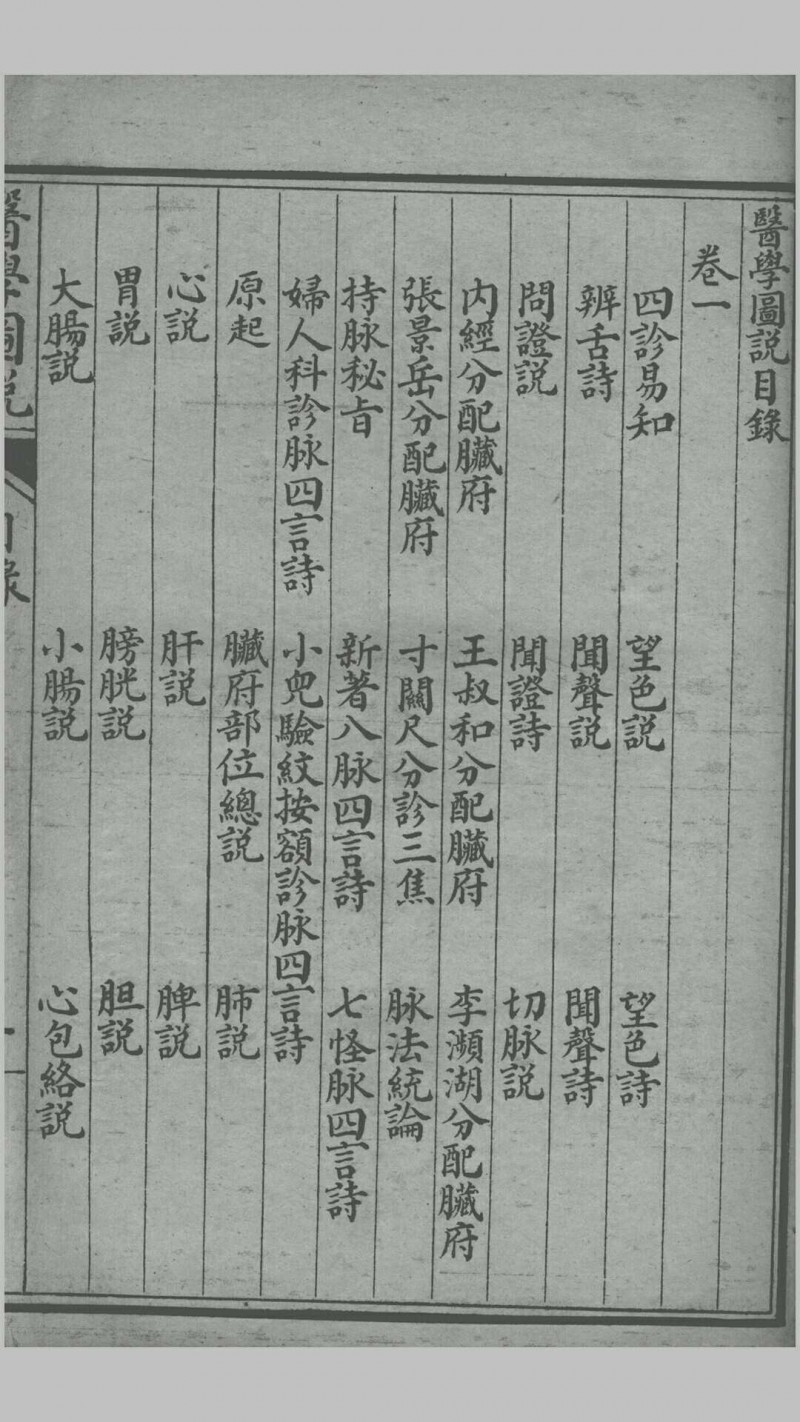 醫學圖説目錄
卷一
四診易知 望色説 望色詩
辨舌詩 聞聲説 聞聲詩
問證説 聞證詩 切脉説
内經分配臟府 王叔和分配臟府 李瀕湖分配臟府
張景岳分配臟府 寸關尺分診三焦 脉法統論
持脉秘旨 新著八脉四言詩 七怪脉四言詩
婦人科診脉四言詩 小兒驗紋按額診脉四言詩
原起 臟府部位總説 肺説
心説 肝説 脾説
胃説 膀胱説 胆説
大腸説 小腸説 心包絡説
醫學圖説 目錄 一